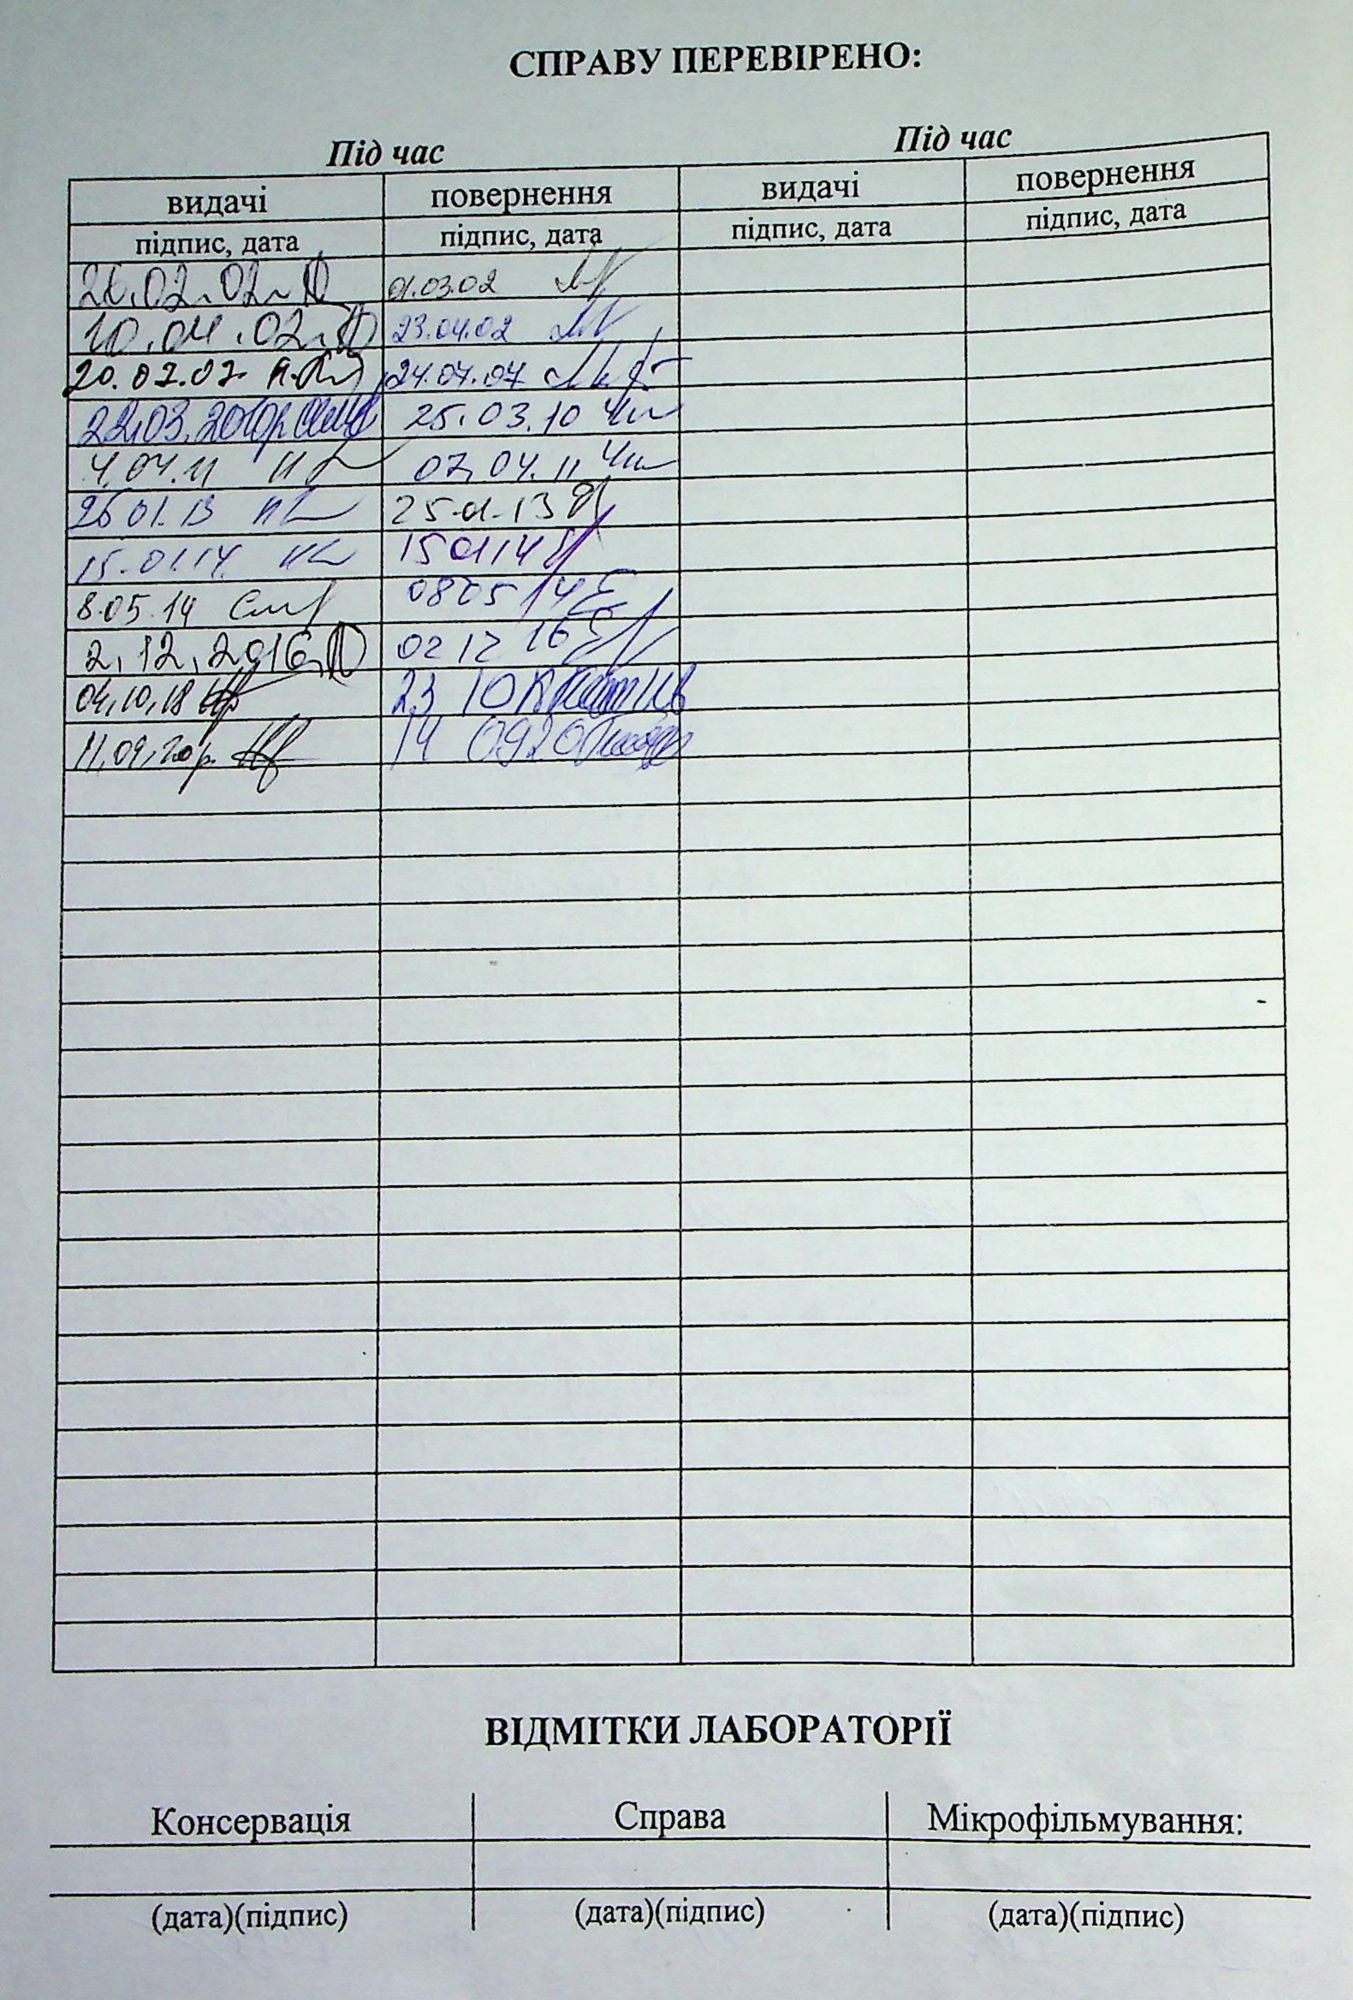 СПРАВУ ПЕРЕВІРЕНО:
Під час Під час
видачі повернення видачі повернення
підпис, дата підпис, дата підпис, дата підпис, дата
26.02.02 01.03.02
10.04.02 23.04.02
20.07.07 24.07.07
22.03.2010р 25.03.10
4.04.11 07.04.11
26 01.13 25.01.13
15.01.14. 15 01 14
8.05.14 08 05 14
2.12.2016 02 12 16
04.10.18 23 10
11.09.20р. 14 09 20
ВІДМІТКИ ЛАБОРАТОРІЇ
Консервація Справа Мікрофільмування:
(дата)(підпис) (дата)(підпис) (дата)(підпис)